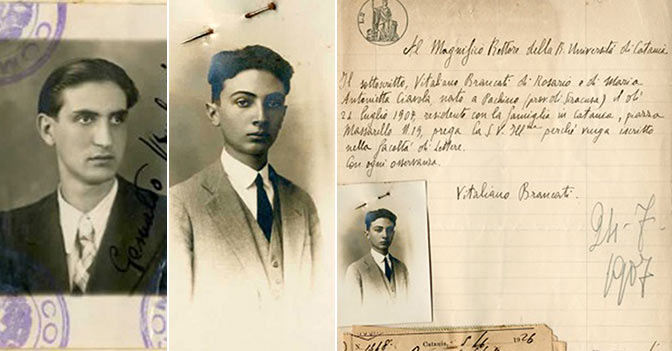 Gesualdo
Al Magnifico Rettore della R. Università di Catania
Il sottoscritto, Vitaliano Brancati di Rosario e di Maria
Antonietta Ciavola nato a Pachino (prov. di Siracusa) il dì
24 luglio 1907, residente con la famiglia in Catania, piazza
N. 19, prega la S. V. Ill.ma perché venga iscritto
nella facoltà di Lettere.
Con ogni osservanza.
Vitaliano Brancati.
24-7-
1907
Catania, 1926